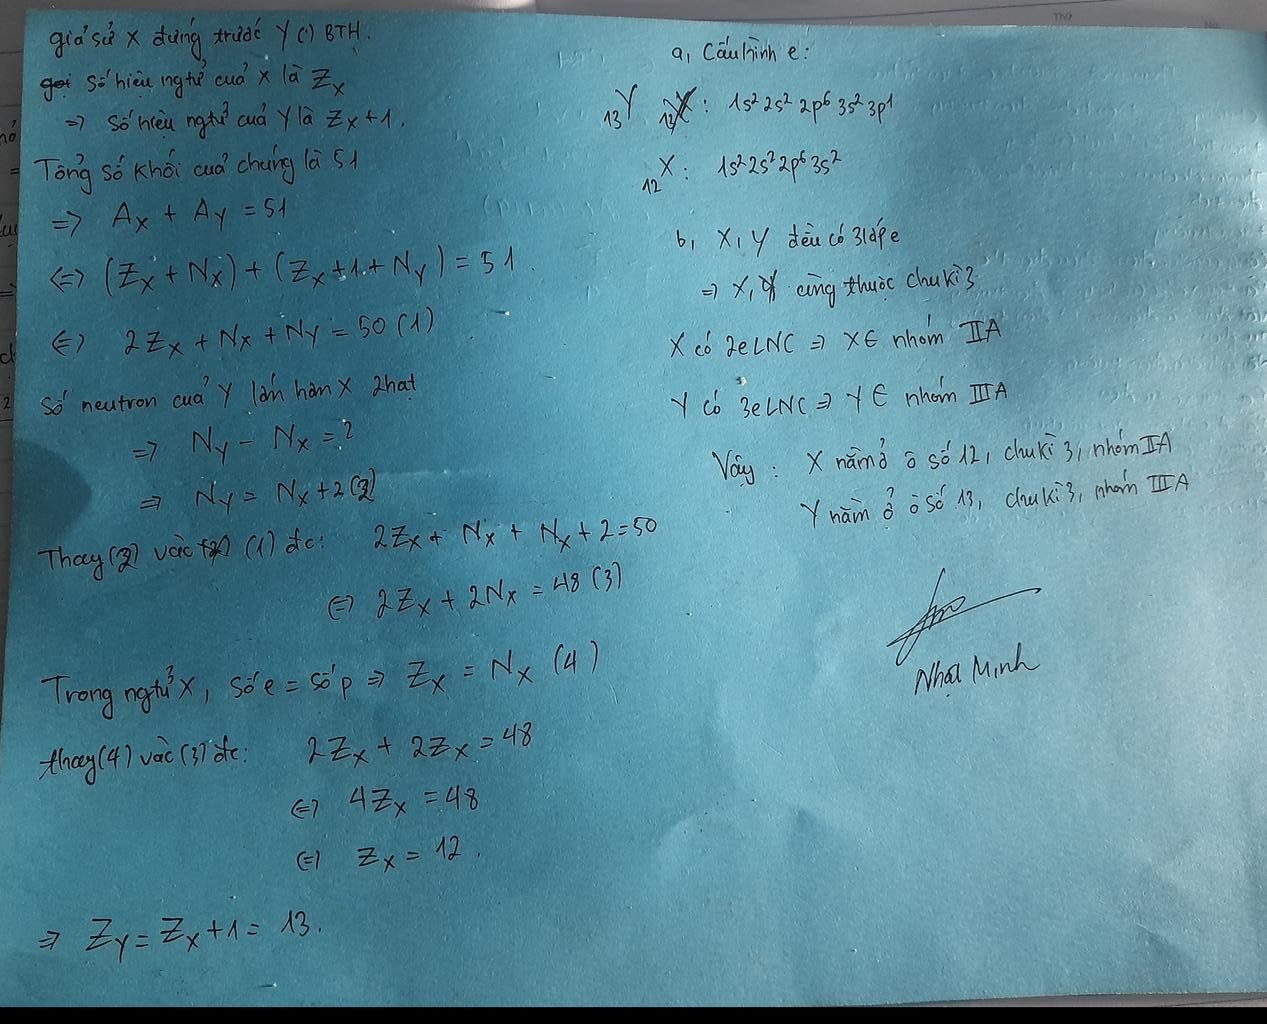 giả sử X đứng trước Y (') BTH.
số hiệu ngtử của X là Zₓ
=> số hiệu ngtử của Y là Zₓ+1.
Tổng số khối của chúng là 51
=> Aₓ + A_Y = 51
<=> (Zₓ + Nₓ) + (Zₓ+1+N_Y) = 51
<=> 2Zₓ + Nₓ + N_Y = 50 (1)
Số neutron của Y lớn hơn X 2 hạt
=> N_Y - Nₓ = 2
=> N_Y = Nₓ+2 (2)
Thay (2) vào (1) đc: 2Zₓ + Nₓ + Nₓ + 2 = 50
<=> 2Zₓ + 2Nₓ = 48 (3)
Trong ngtử X, số e = số p => Zₓ = Nₓ (4)
thay (4) vào (3) đc: 2Zₓ + 2Zₓ = 48
<=> 4Zₓ = 48
<=> Zₓ = 12.
=> Z_Y = Zₓ+1 = 13.
a, Cấu hình e:
₁₃Y : 1s² 2s² 2p⁶ 3s² 3p¹
₁₂X : 1s² 2s² 2p⁶ 3s²
b, X, Y đều có 3 lớp e
=> X, Y cùng thuộc chu kì 3
X có 2e LNC => X ∈ nhóm IIA
Y có 3e LNC => Y ∈ nhóm IIIA
Vậy : X nằm ở ô số 12, chu kì 3, nhóm IIA
Y nằm ở ô số 13, chu kì 3, nhóm IIIA
Minh